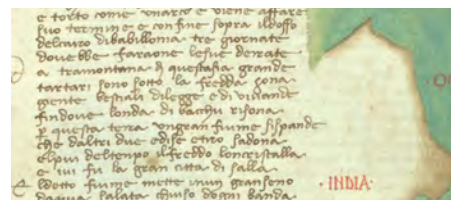 e torto come unarco e viene affare
suo termine e confine sopra ildosso
delcairo dibabillonia tre giornate
doue bbe faraone le sue derrate
a tramontana di questasia grande
tartari sono sotto la fredda çona
gente bestiali dilegge e di viuande
fin doue londa di bacchu risona
p questa terra ungran fiume sispande
che daltri due edise etiro sadona
elpiu deltempo ilfreddo loncristalla
e iui fu la gran citta di salla
ldetto fiume mette inun granseno
dacqua salata chiuso dogni banda
INDIA